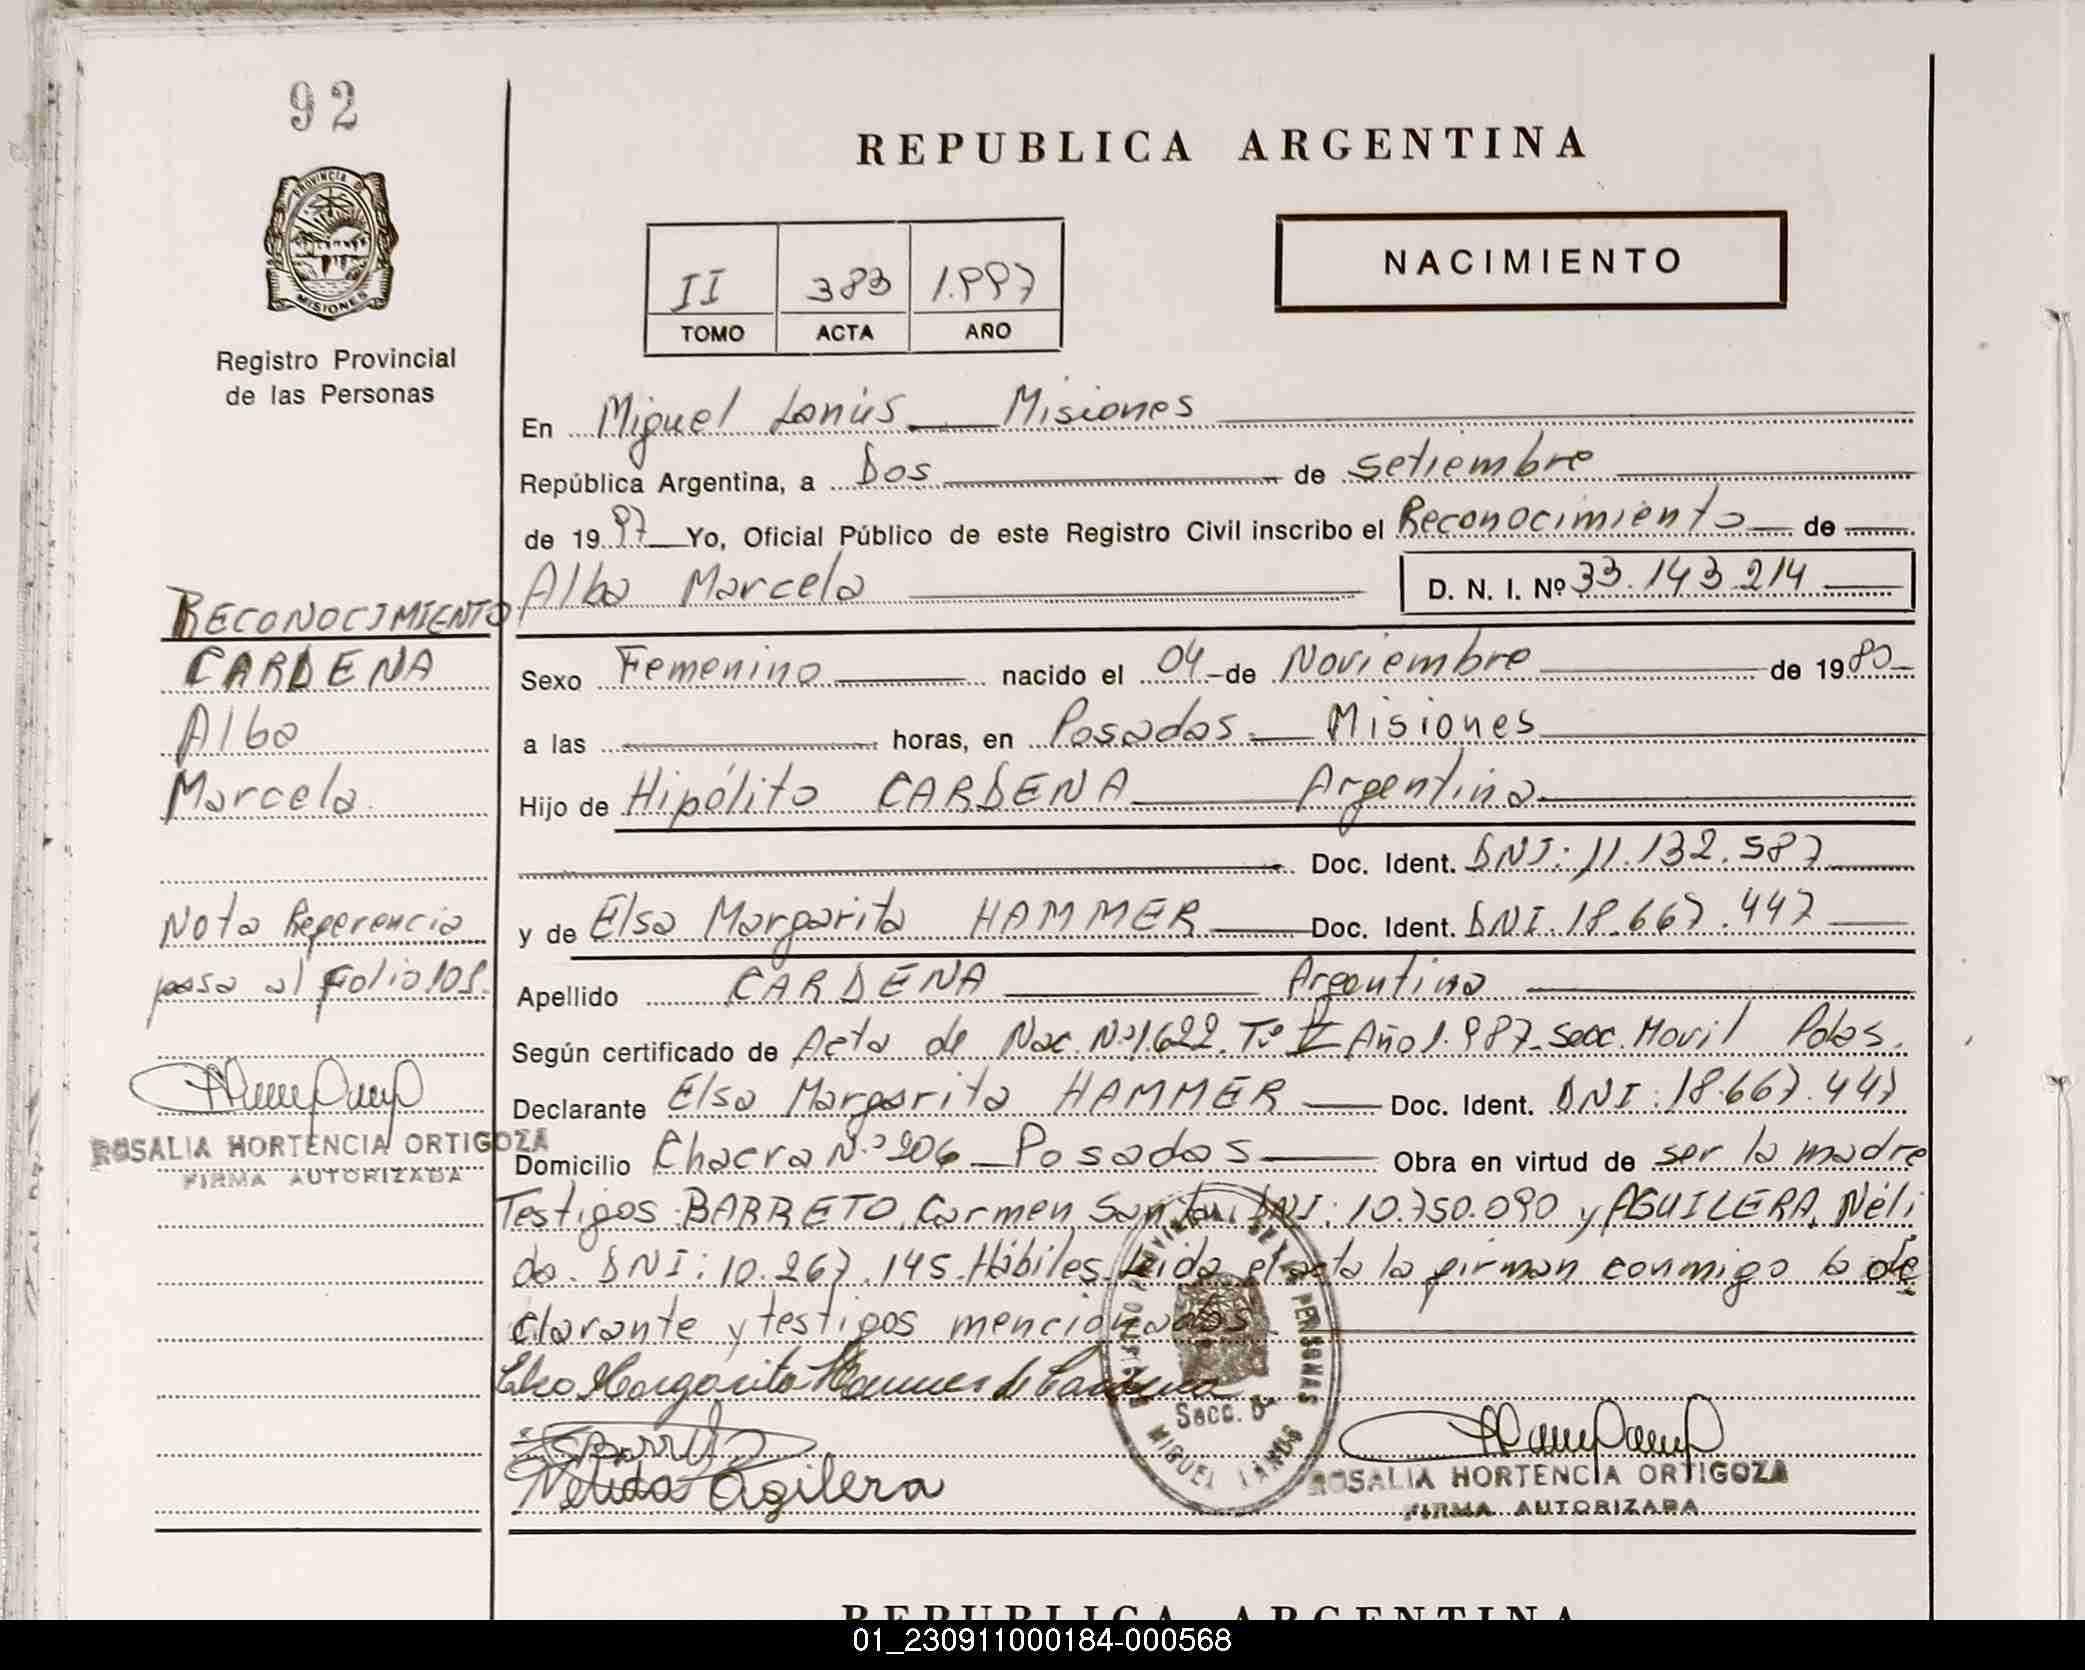 92
REPUBLICA ARGENTINA
PROVINCIA DE
MISIONES
Registro Provincial
de las Personas
II 383 1.997
TOMO ACTA AÑO
NACIMIENTO
En Miguel Lanús Misiones
República Argentina, a Dos de setiembre
de 1997 Yo, Oficial Público de este Registro Civil inscribo el Reconocimiento de
Alba Marcela D. N. I. Nº 33.143.214
Sexo Femenino nacido el 04 de Noviembre de 1980
a las horas, en Posadas Misiones
Hijo de Hipólito CARDENA Argentina
Doc. Ident. DNI: 11.132.587
y de Elsa Margarita HAMMER Doc. Ident. DNI. 18.667.447
Apellido CARDENA Argentina
Según certificado de Acta de Nac. Nº 1.622. Tº Año 1.987. Secc. Movil Pdas.
Declarante Elsa Margarita HAMMER Doc. Ident. DNI: 18.667.447
Domicilio Chacra N.º 206 Posadas Obra en virtud de ser la madre
Testigos: BARRETO, Carmen DNI: 10.750.090 y AGUILERA, Néli
da. DNI: 10.267.145. Hábiles. Leida el acta la firman conmigo la de
clarante y testigos mencionados
Elsa Margarita Hammer de Cardena
Nelida Agilera
RECONOCIMIENTO
CARDENA
Alba
Marcela
Nota Referencia
pasa al Folio 101.
ROSALIA HORTENCIA ORTIGOZA
FIRMA AUTORIZADA
PERSONAS
Secc.
MIGUEL LANUS
ROSALIA HORTENCIA ORTIGOZA
FIRMA AUTORIZADA
REPUBLICA ARGENTINA
01_230911000184-000568